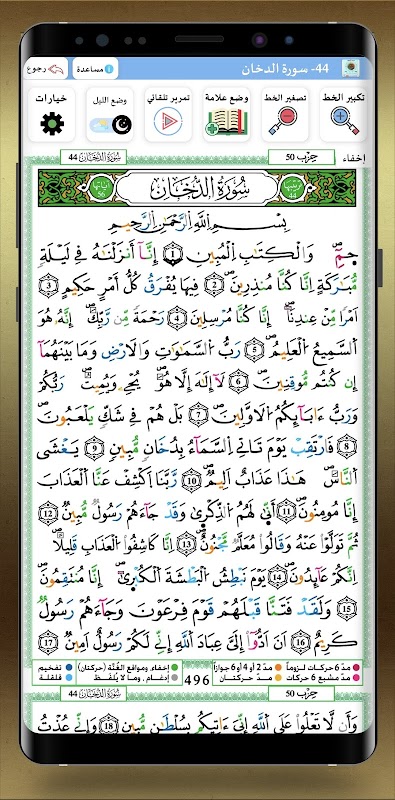 44- سورة الدخان مساعدة رجوع
تكبير الخط تصغير الخط وضع علامة تمرير تلقائي وضع الليل خيارات
إخفاء حِزْب 50 سُورَةُ الدُّخَانِ 44
سُورَةُ الدُّخَانِ
بِسْمِ اللَّهِ الرَّحْمَٰنِ الرَّحِيمِ
حمٓ وَالْكِتَٰبِ الْمُبِينِ 1 إِنَّآ أَنزَلْنَٰهُ فِے لَيْلَةٖ
مُّبَٰرَكَةٍ اِنَّا كُنَّا مُنذِرِينَ 2 فِيهَا يُفْرَقُ كُلُّ أَمْرٍ حَكِيمٍ 3
اَمْراٗ مِّنْ عِندِنَآ إِنَّا كُنَّا مُرْسِلِينَ 4 رَحْمَةٗ مِّن رَّبِّكَ إِنَّهُۥ هُوَ
اَ۬لسَّمِيعُ اُ۬لْعَلِيمُ 5 رَبُّ اُ۬لسَّمَٰوَٰتِ وَالَارْضِ وَمَا بَيْنَهُمَآ
إِن كُنتُم مُّوقِنِينَ 6 لَآ إِلَٰهَ إِلَّا هُوَ يُحْيِۦ وَيُمِيتُ رَبُّكُمْ
وَرَبُّ ءَابَآئِكُمُ اُ۬لَاوَّلِينَ 7 بَلْ هُمْ فِے شَكّٖ يَلْعَبُونَ
8 فَارْتَقِبْ يَوْمَ تَاتِے اِ۬لسَّمَآءُ بِدُخَانٖ مُّبِينٖ 9 يَغْشَى
اَ۬لنَّاسَ هَٰذَا عَذَابٌ اَلِيمٌ 10 رَّبَّنَا اَ۪كْشِفْ عَنَّا اَ۬لْعَذَابَ
إِنَّا مُومِنُونَ 11 أَنّ۪يٰ لَهُمُ اُ۬لذِّكْر۪يٰ وَقَدْ جَآءَهُمْ رَسُولٞ مُّبِينٞ 12
ثُمَّ تَوَلَّوْاْ عَنْهُ وَقَالُواْ مُعَلَّمٞ مَّجْنُونٌ 13 اِنَّا كَاشِفُواْ اُ۬لْعَذَابِ قَلِيلاً
اِنَّكُمْ عَآئِدُونَ 14 يَوْمَ نَبْطِشُ اُ۬لْبَطْشَةَ اَ۬لْكُبْر۪يٰٓ إِنَّا مُنتَقِمُونَ
15 وَلَقَدْ فَتَنَّا قَبْلَهُمْ قَوْمَ فِرْعَوْنَ وَجَآءَهُمْ رَسُولٞ
كَرِيمٌ 16 اَنَ اَدُّوٓاْ إِلَيَّ عِبَادَ اَ۬للَّهِ إِنِّے لَكُمْ رَسُولٌ اَمِينٞ 17
مدّ 6 حركات لزوماً مدّ 2 أو 4 أو 6 جوازاً إخفاء، ومواقع الغُنَّة (حركتان) تفخيم
مدّ مشبع 6 حركات مدّ حركتان 496 إدغام، وما لا يُلفَظ قلقلة
حِزْب 50 سُورَةُ الدُّخَانِ 44
وَأَن لَّا تَعْلُواْ عَلَى اَ۬للَّهِ إِنِّيَ ءَاتِيكُم بِسُلْطَٰنٖ مُّبِينٖ 18 وَإِنِّے عُذْتُ